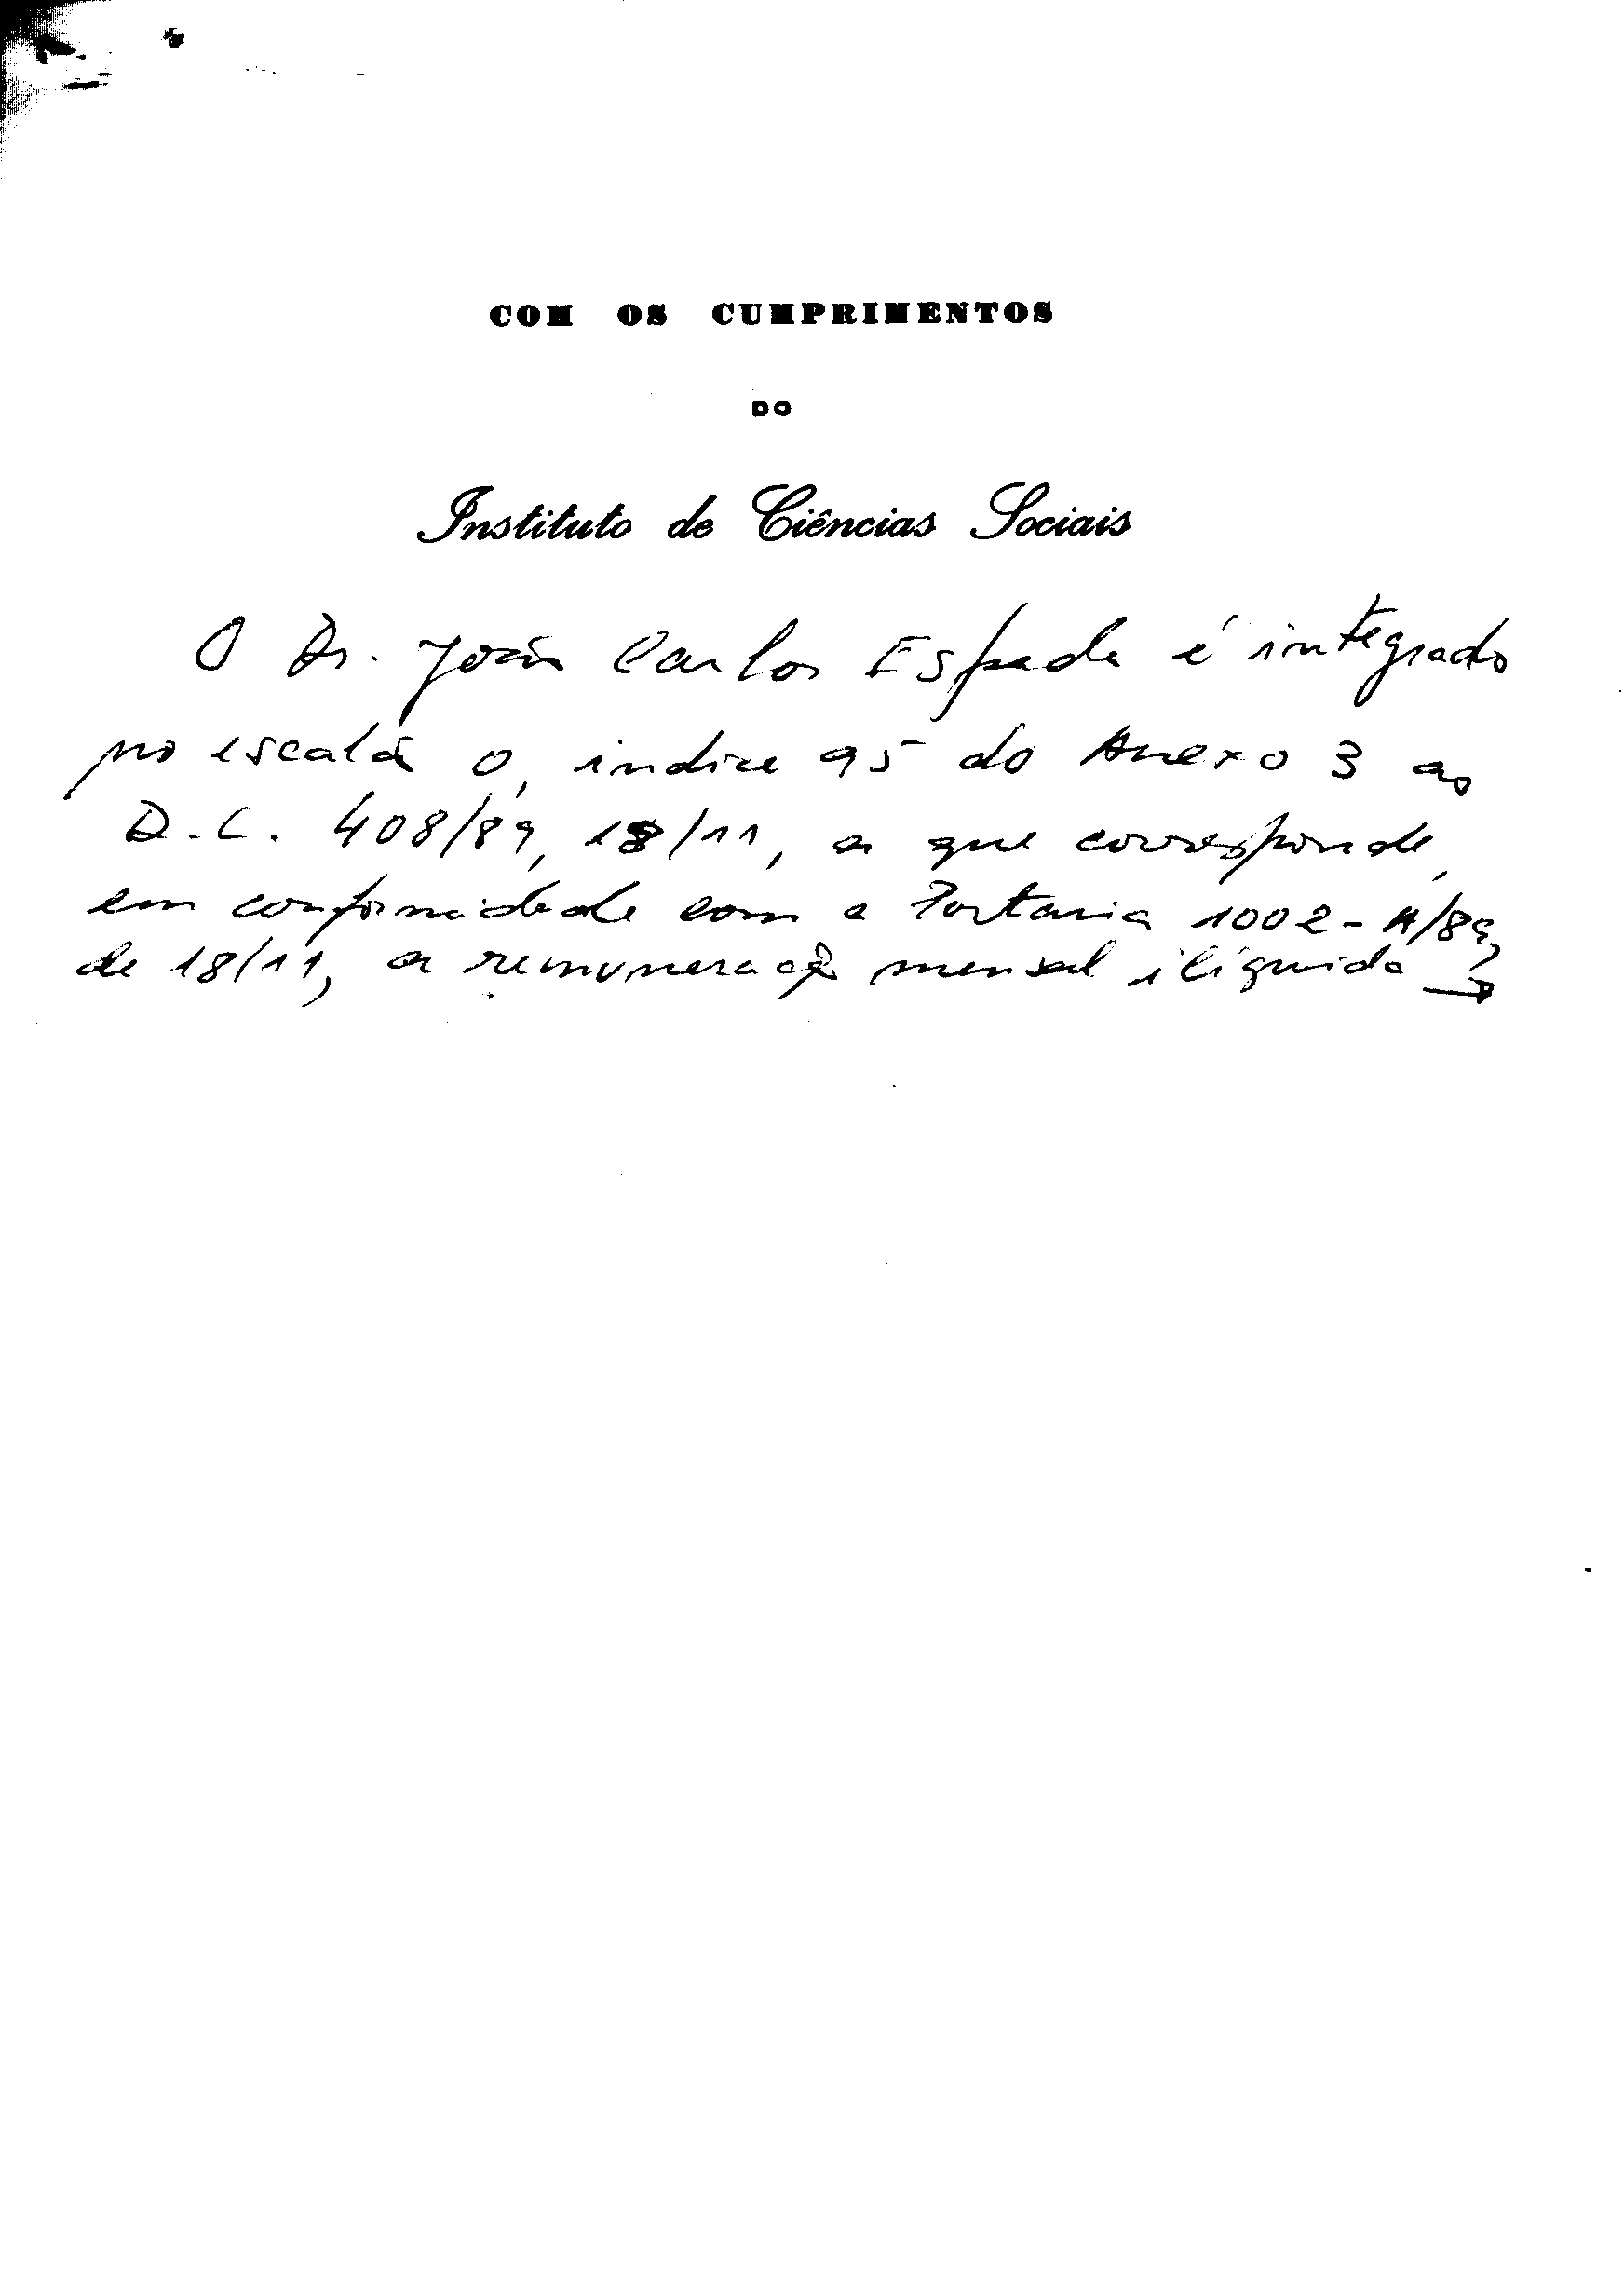 COM OS CUMPRIMENTOS
DO
Instituto de Ciências Sociais
O Dr. João Carlos Espada é integrado
no escalão 0, indice 95 do Anexo 3 ao
D.L. 408/89, 18/11, a que corresponde,
em conformidade com a Portaria 1002-A/89,
de 18/11, a remuneração mensal ilíquida →